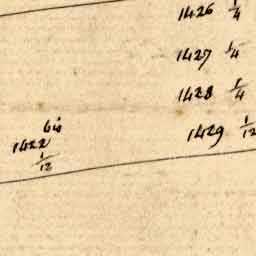 1426 1/4
1427 1/4
1428 1/4
1429 1/12
bis
1422
1/12